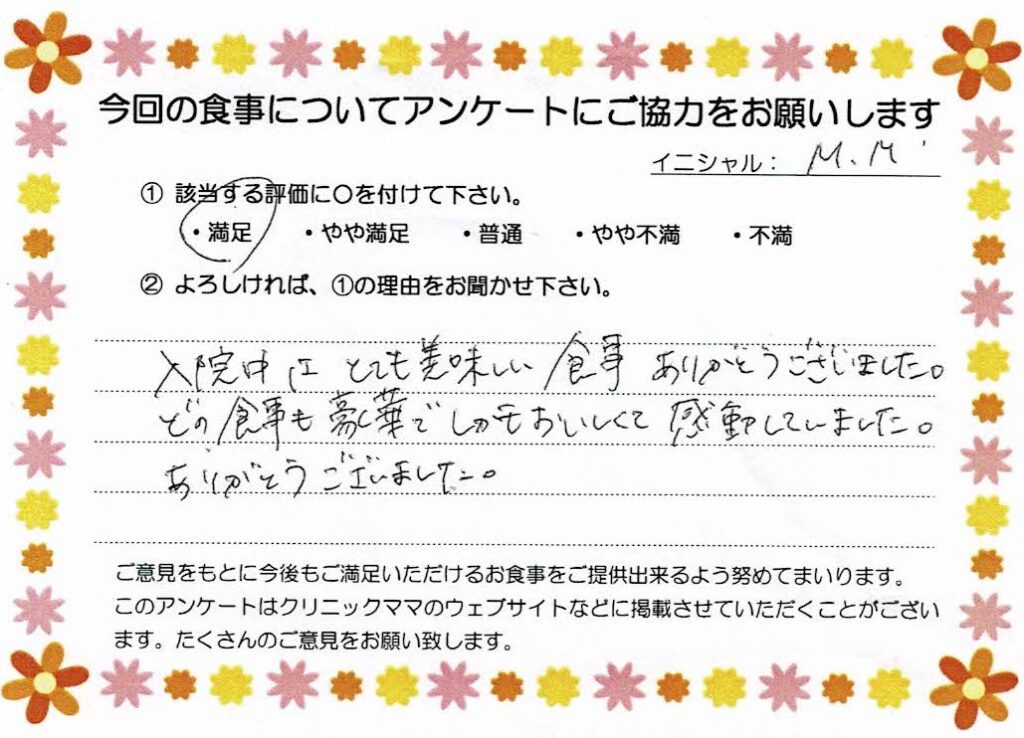 今回の食事についてアンケートにご協力をお願いします
イニシャル： M.M
① 該当する評価に〇を付けて下さい。
・満足 ・やや満足 ・普通 ・やや不満 ・不満
② よろしければ、①の理由をお聞かせ下さい。
入院中は とても美味しい 食事 ありがとうございました。
どの食事も豪華でしかもおいしくて 感動していました。
ありがとうございました。
ご意見をもとに今後もご満足いただけるお食事をご提供出来るよう努めてまいります。
このアンケートはクリニックママのウェブサイトなどに掲載させていただくことがござい
ます。たくさんのご意見をお願い致します。